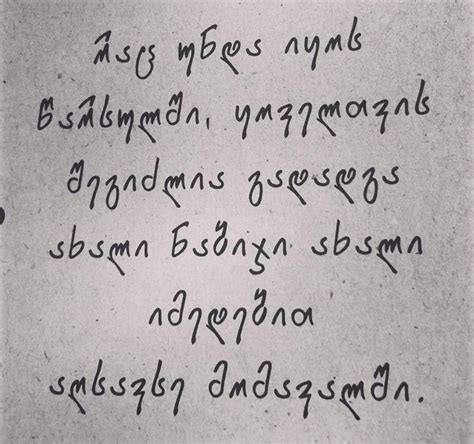 რაც უნდა იყოს
წარსულში, ყოველთვის
შეგიძლია გადადგა
ახალი ნაბიჯი ახალი
იმედებით
აღსავსე მომავალში.